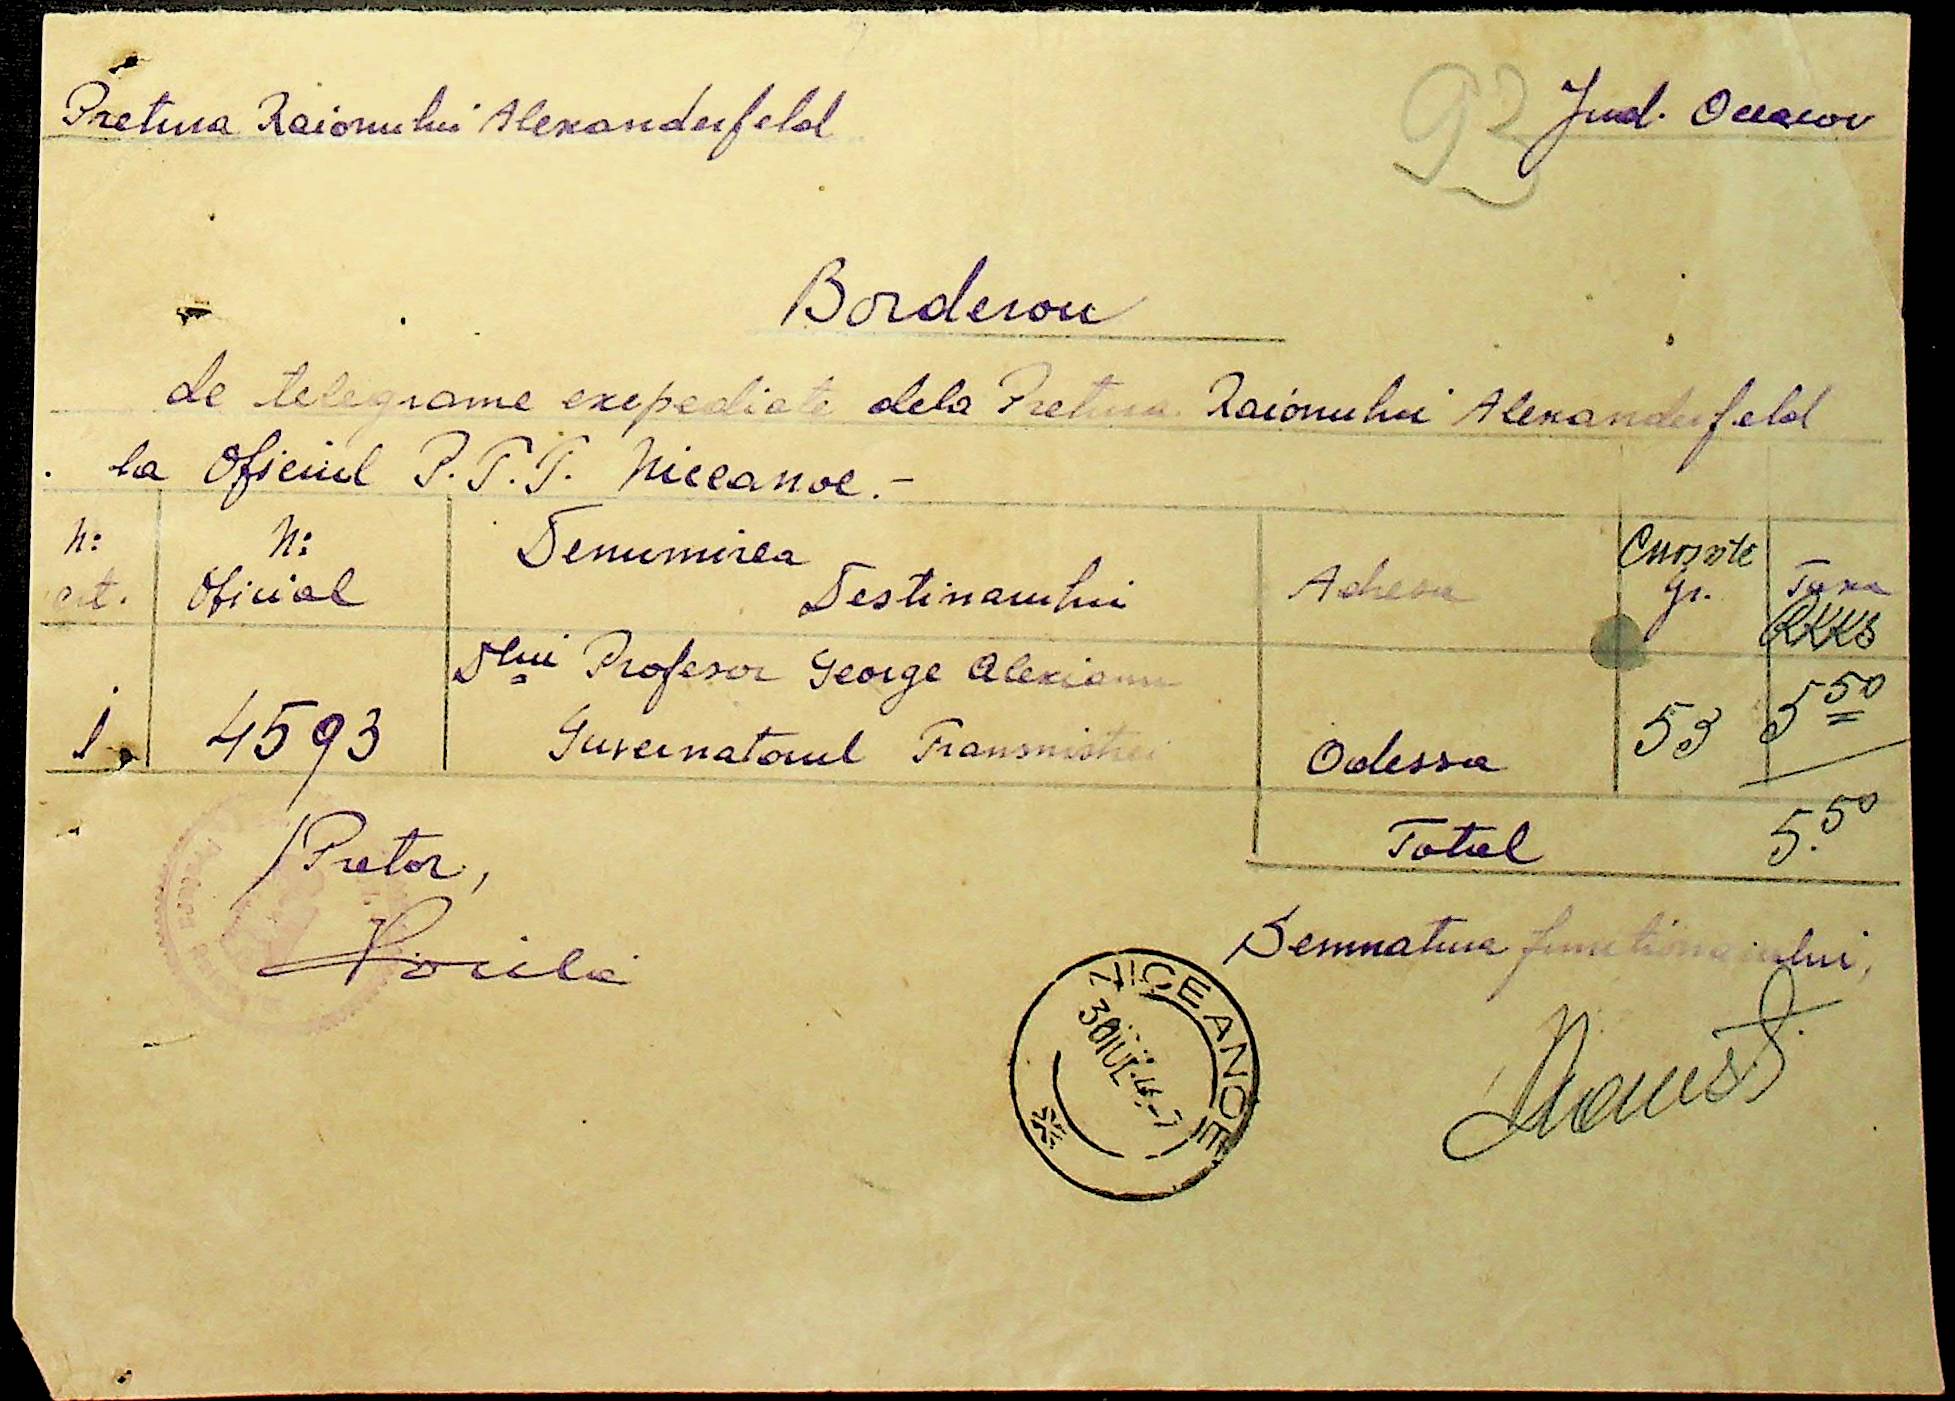 Pretura Raionului Alexanderfeld
Jud. Oceacov
93
Borderou
de telegrame exepediate dela Pretura Raionului Alexanderfeld
la Oficiul P.T.T. Niceanoe.-
N: crt.
N: Oficial
Denumirea Destinarului
Adresa
Cuvinte
gr.
Taxa
RKKS
1.
4593
Dlui Profesor George Alexianu
Guvernatorul Transnistriei
Odessa
53
5 50
Total
5.50
Pretor,
Semnatura functionarului,
NICEANOE
30 IUL